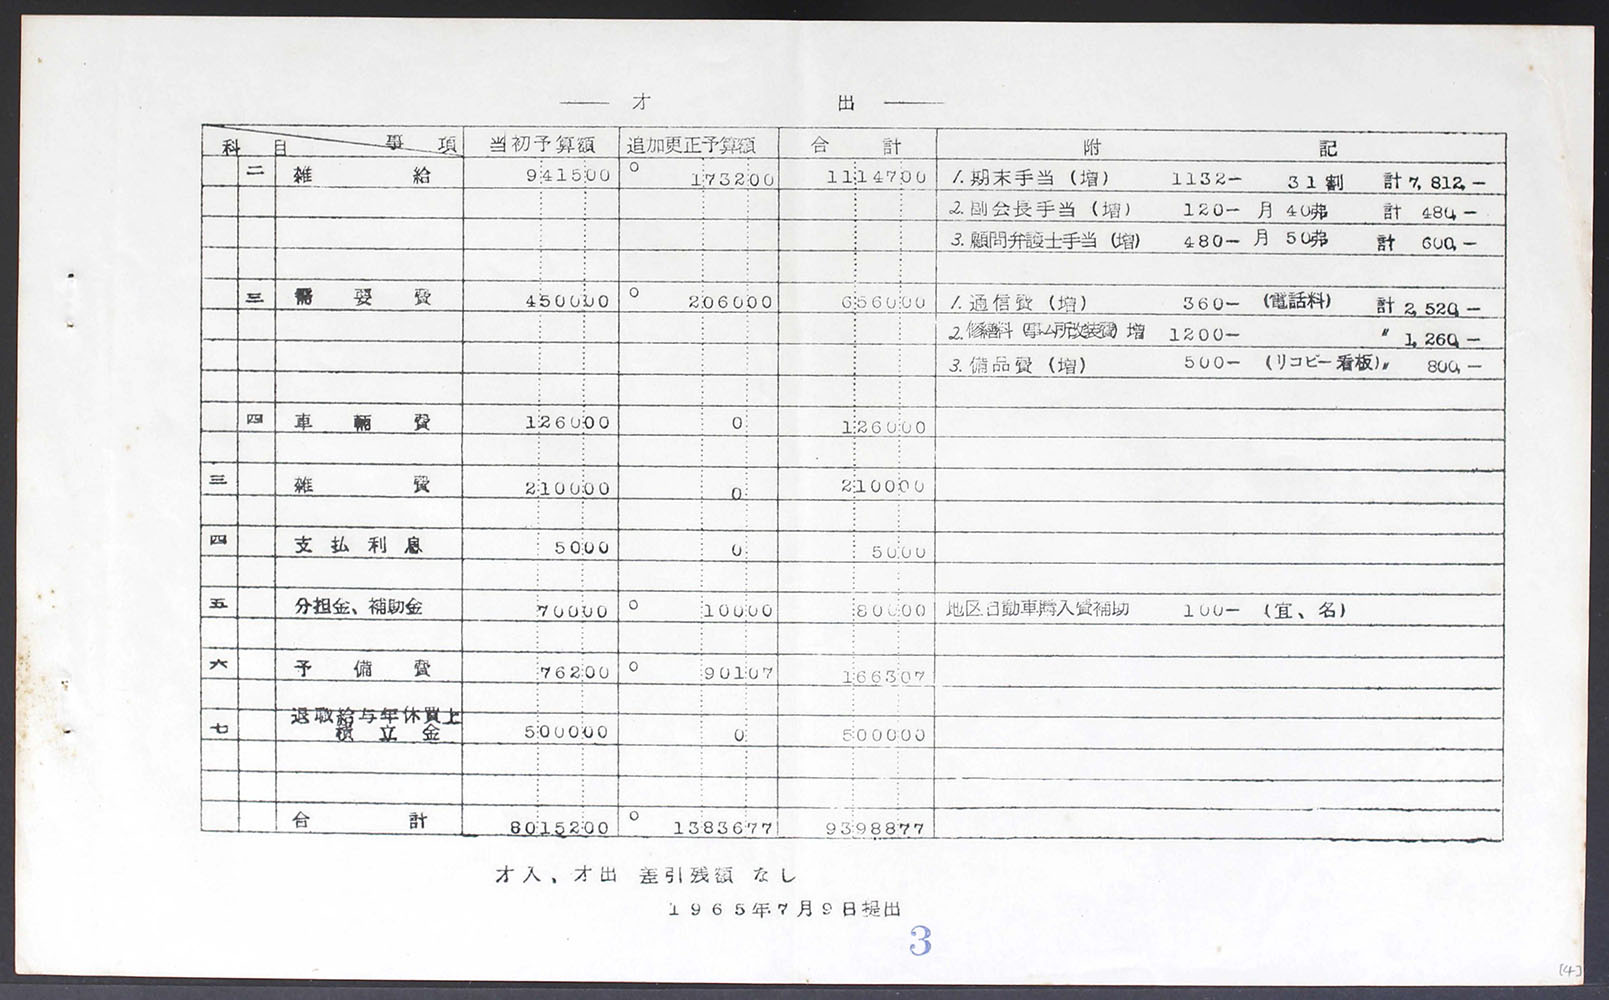 才 出
科 目 事 項 当初予算額 追加更正予算額 合 計 附 記
二 雑 給 941500 ° 173200 1114700 1.期末手当(増) 1132- 31割 計7,812,-
2.副会長手当(増) 120- 月40弗 計 480,-
3.顧問弁護士手当(増) 480- 月50弗 計 600,-
三 需 要 費 450000 ° 206000 656000 1.通信費(増) 360- (電話料) 計2,520,-
2.修繕料(事ム所改装費)増 1200- 〃 1,260,-
3.備品費(増) 500- (リコピー看板)〃 800,-
四 車 輌 費 126000 0 126000
三 雑 費 210000 0 210000
四 支 払 利 息 5000 0 5000
五 分担金、補助金 70000 ° 10000 80000 地区自動車購入費補助 100- (宜、名)
六 予 備 費 76200 ° 90107 166307
七 退職給与年休買上
積 立 金 500000 0 500000
合 計 8015200 ° 1383677 9398877
才入、才出 差引残額 なし
1965年7月9日提出
3
[4]